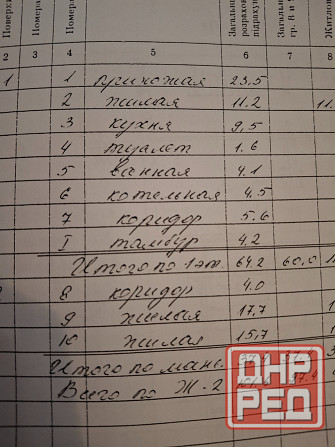 Поверхи
Номера
Номера
2 3 4 5 6 7 8
1 1 прихожая 23,5
2 жилая 11.2 11.
3 кухня 9,5
4 туалет 1.6
5 ванная 4.1
6 котельная 4.5
7 коридор 5.6
I тамбур 4.2
Итого по 1 эт. 64,2 60,0
8 коридор 4.0
9 жилая 17,7
10 жилая 15,7
Итого по манс.
Всего по Ж-2
ДНР
РЕД